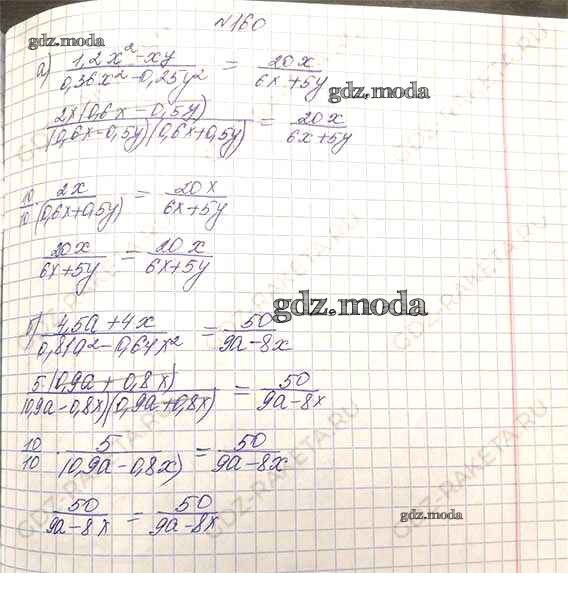 №160
gdz.moda
а) (1,2x² - xy)/(0,36x² - 0,25y²) = 20x/(6x + 5y)
gdz.moda
2x(0,6x - 0,5y)/((0,6x - 0,5y)(0,6x + 0,5y)) = 20x/(6x + 5y)
10/10 · 2x/(0,6x + 0,5y) = 20x/(6x + 5y)
20x/(6x + 5y) = 20x/(6x + 5y)
gdz.moda
б) (4,5a + 4x)/(0,81a² - 0,64x²) = 50/(9a - 8x)
5·(0,9a + 0,8x)/((0,9a - 0,8x)(0,9a + 0,8x)) = 50/(9a - 8x)
10/10 · 5/(0,9a - 0,8x) = 50/(9a - 8x)
50/(9a - 8x) = 50/(9a - 8x)
gdz.moda
GDZ-RAKETA.RU